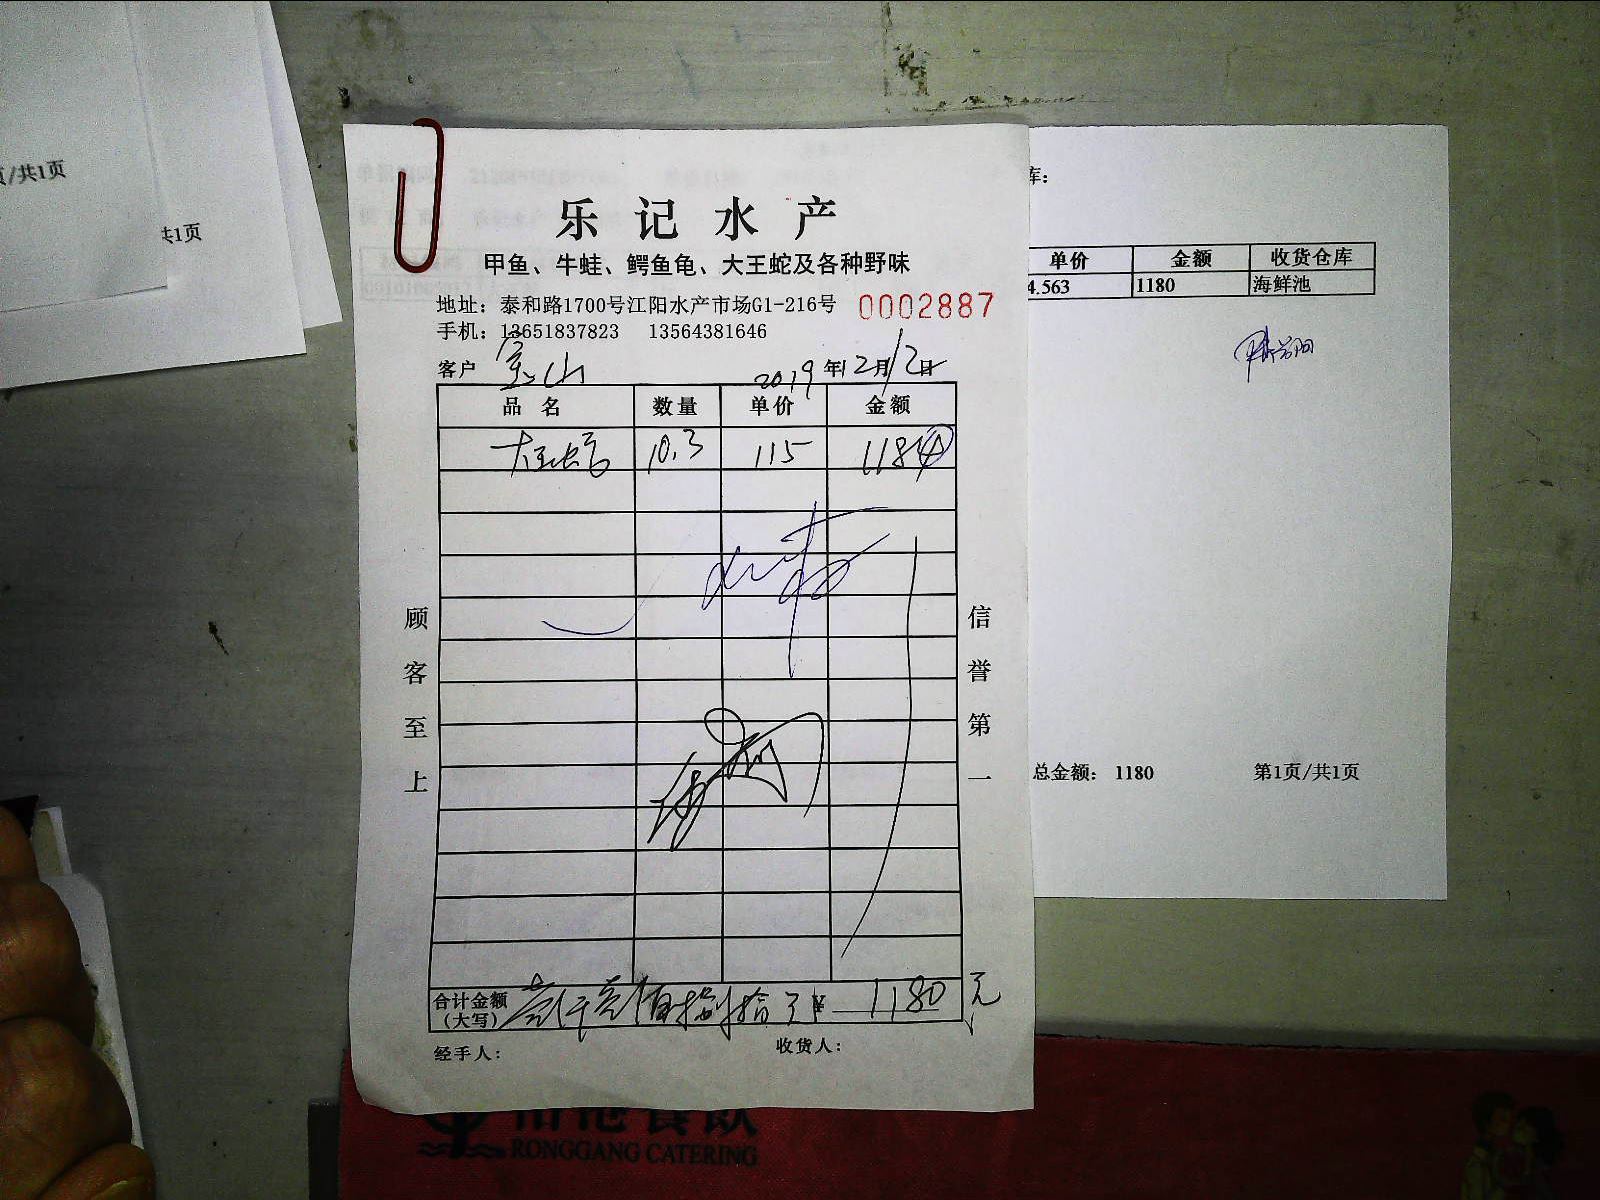 页/共1页
共1页
乐记水产
甲鱼、牛蛙、鳄鱼龟、大王蛇及各种野味
地址：泰和路1700号江阳水产市场G1-216号 0002887
手机：13651837823 13564381646
客户 宝山 2019年12月12日
品名 数量 单价 金额
大王蛇 10.3 115 1184
顾客至上
信誉第一
合计金额（大写） 壹仟壹佰捌拾 ¥ 1180 元
经手人： 收货人：
库：
单价 金额 收货仓库
4.563 1180 海鲜池
总金额： 1180 第1页/共1页
RONGGANG CATERING